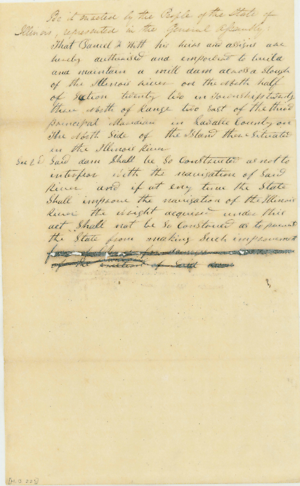 Be it enacted by the People of the State of
Illinois, represented in the General Assembly
That Daniel J. Mills his heirs and assigns are
hereby authorised and empowered to build
and maintain a mill dam across a slough
of the Illinois River on the north half
of Section twenty two in township thirty
three north of Range two East of the third
principal Meridian in Lasalle County on
The North Side of the Island there Situated
in the Illinois River
Sec 2d Said dam Shall be So Constructed as not to
interfere with the navigation of Said
River and if at any time the State
Shall improve the navigation of the Illinois
River the right acquired under this
act Shall not be So Construed as to prevent
the State from making Such improvement
of the of Said dam